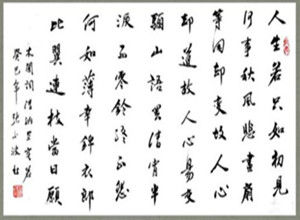 人生若只如初見
何事秋風悲畫扇
等闲却变故人心
却道故人心易变
驪山語罷清宵半
淚雨零鈴終不怨
何如薄幸錦衣郎
比翼連枝當日願
木蘭詞
癸巳年